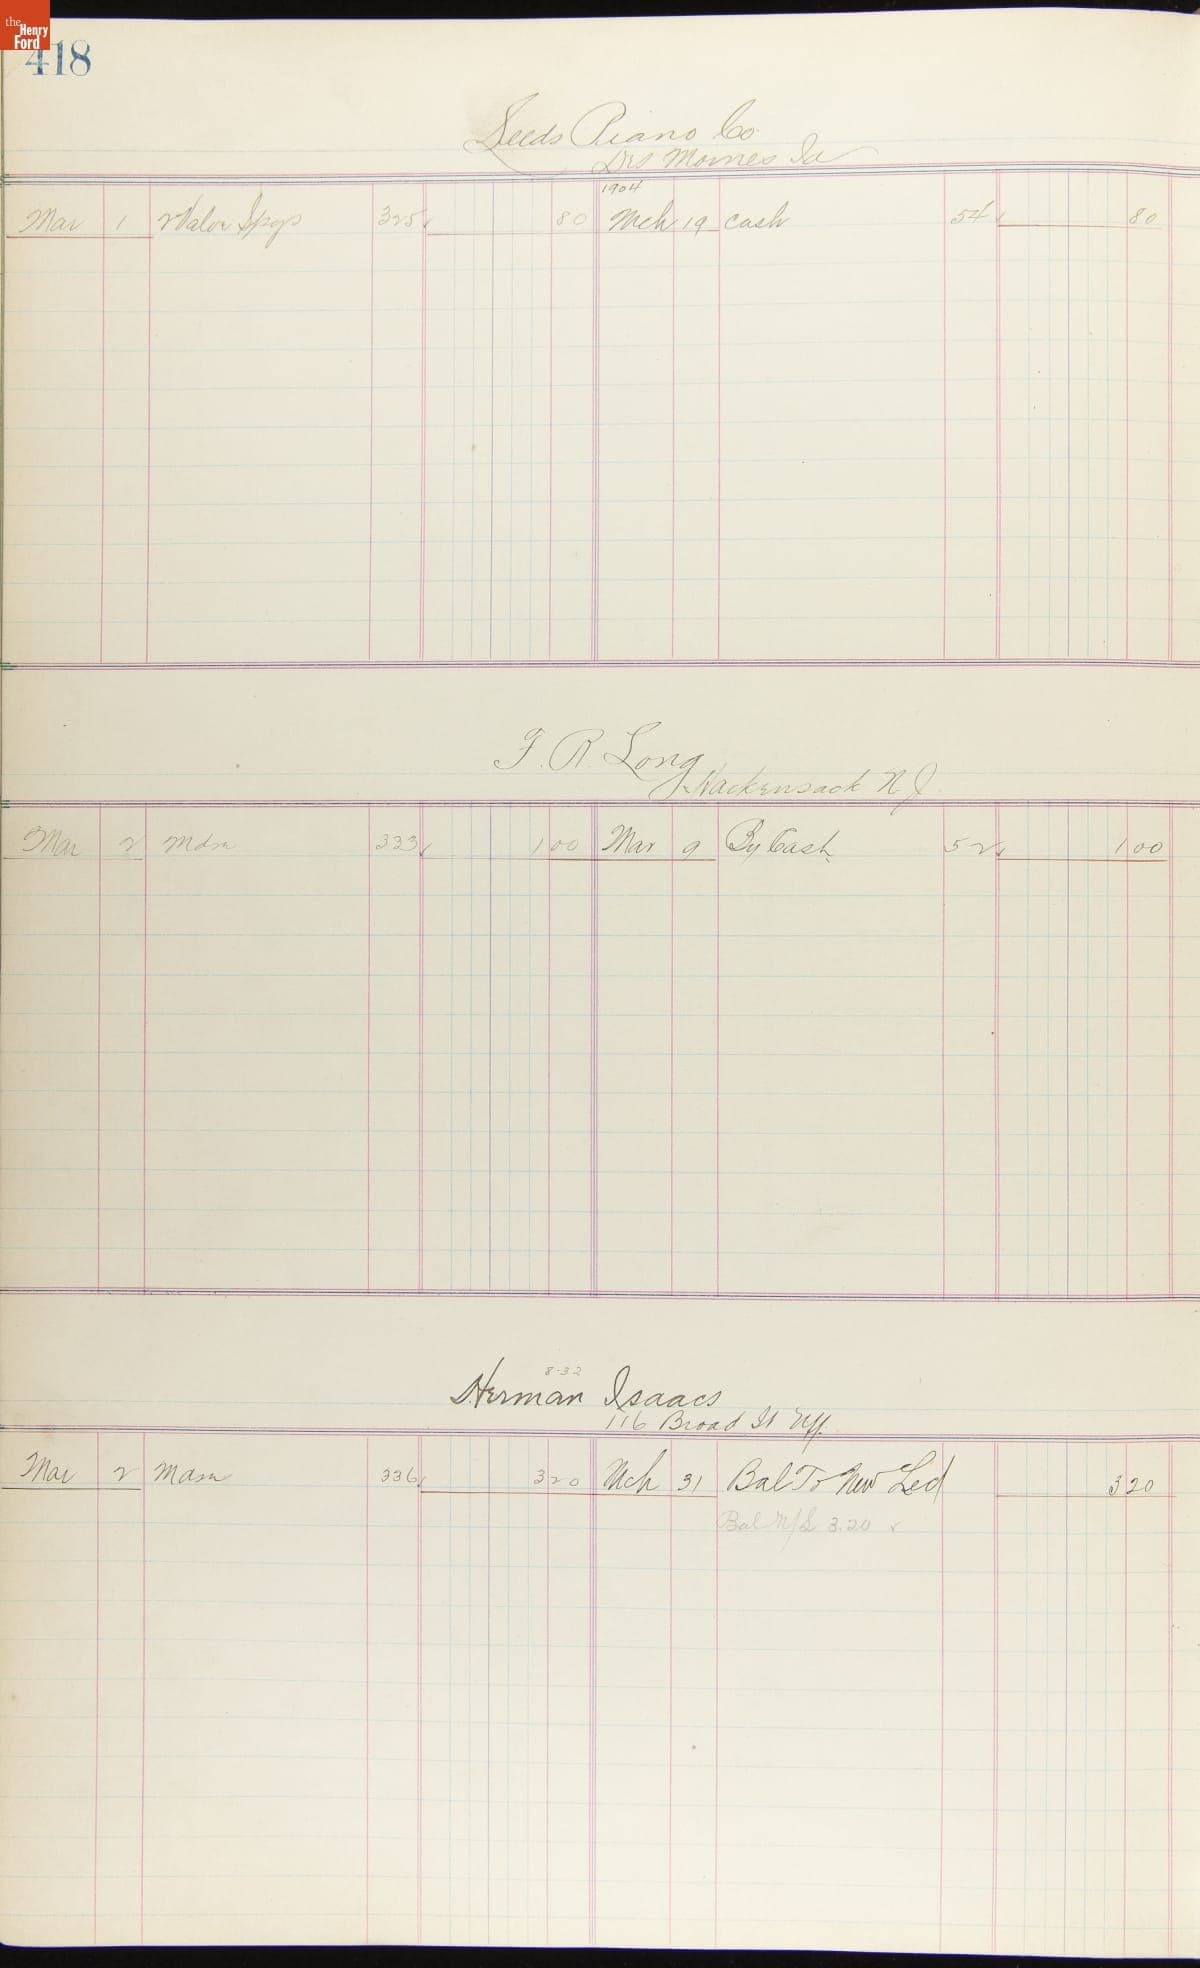 the
Henry
Ford
418
Leeds Piano Co
Des Moines Ia
1904
Mar 1 2 Valve Spgs 325 80 Mch 19 Cash 54 80
F. R. Long
Hackensack N J
Mar 2 Mdse 333 1 00 Mar 9 By Cash 52 1 00
8-32
Herman Isaacs
116 Broad St
Mar 2 Mdse 336 3 20 Mch 31 Bal To New Led 3 20
Bal 3.20